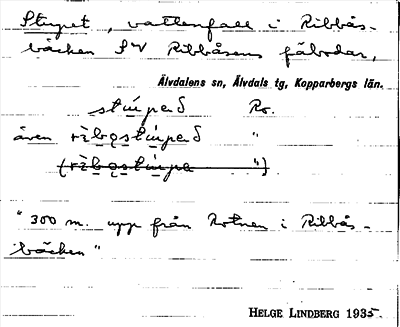 Stupet, vattenfall i Ribbås-
bäcken SV Ribbåsens fäbodar,
Älvdalens sn, Älvdals tg, Kopparbergs län.
stúpeð Ro.
även rìbǫstúpeð "
(rìbǫstúpa ")
"300 m. upp från Rotnen i Ribbås-
bäcken"
HELGE LINDBERG 1935.